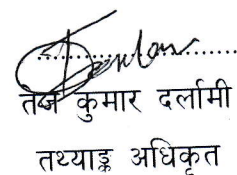 तेज कुमार दर्लामी
तथ्याङ्क अधिकृत